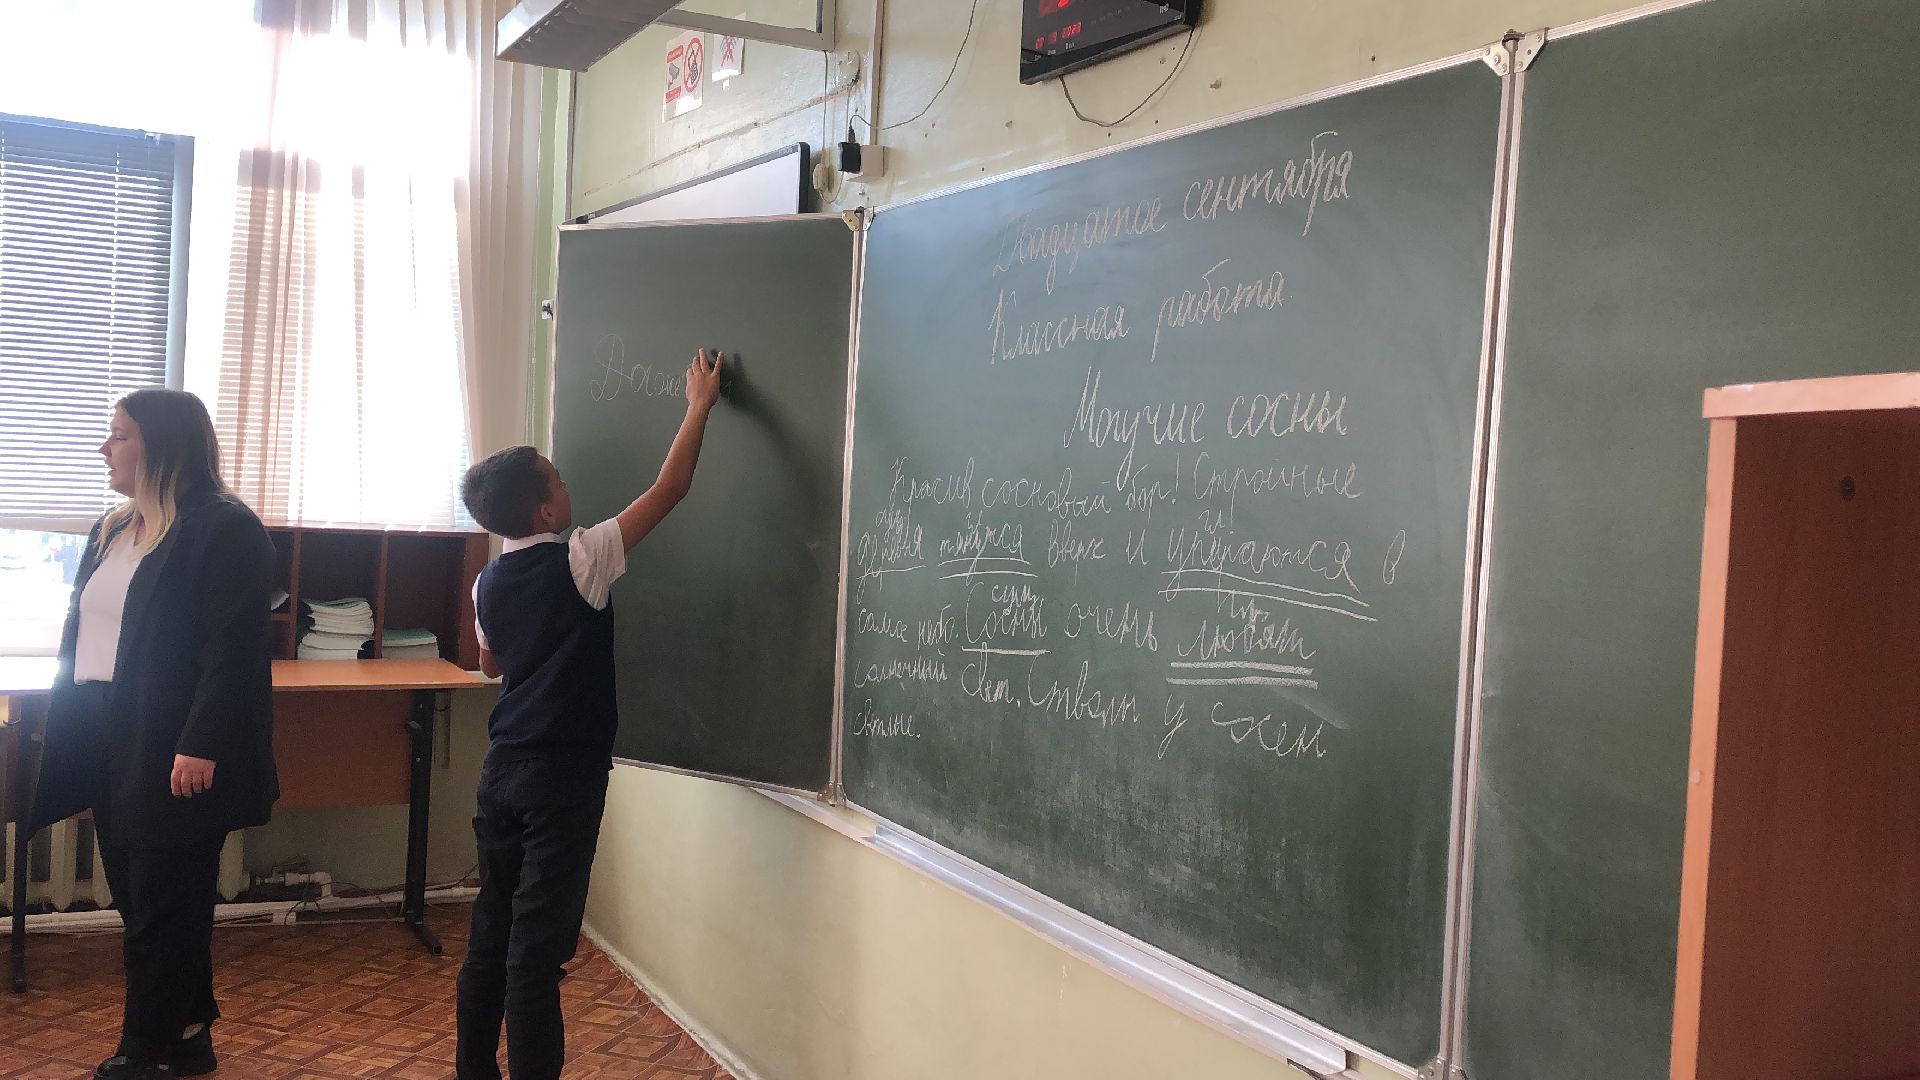 Двадцатое сентября
Классная работа
Могучие сосны
Красив сосновый бор! Стройные
деревья тянутся вверх и упираются в
самое небо. Сосны очень любят
солнечный свет. Стволы у сосен
светлые.